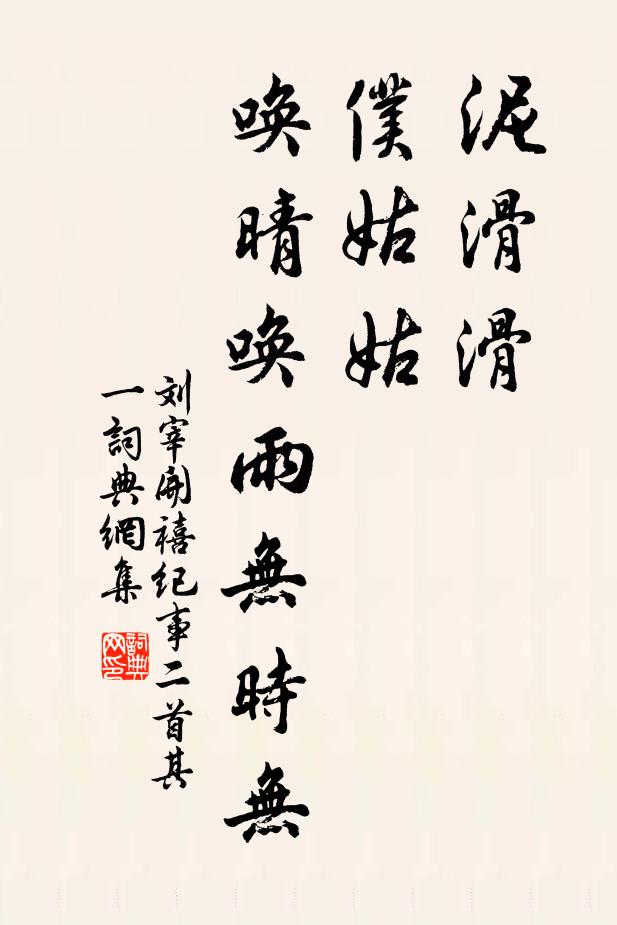 泥滑滑
僕姑姑
喚晴喚雨無時無
刘宰開禧纪事二首其
一詞典網集
詞典
网印